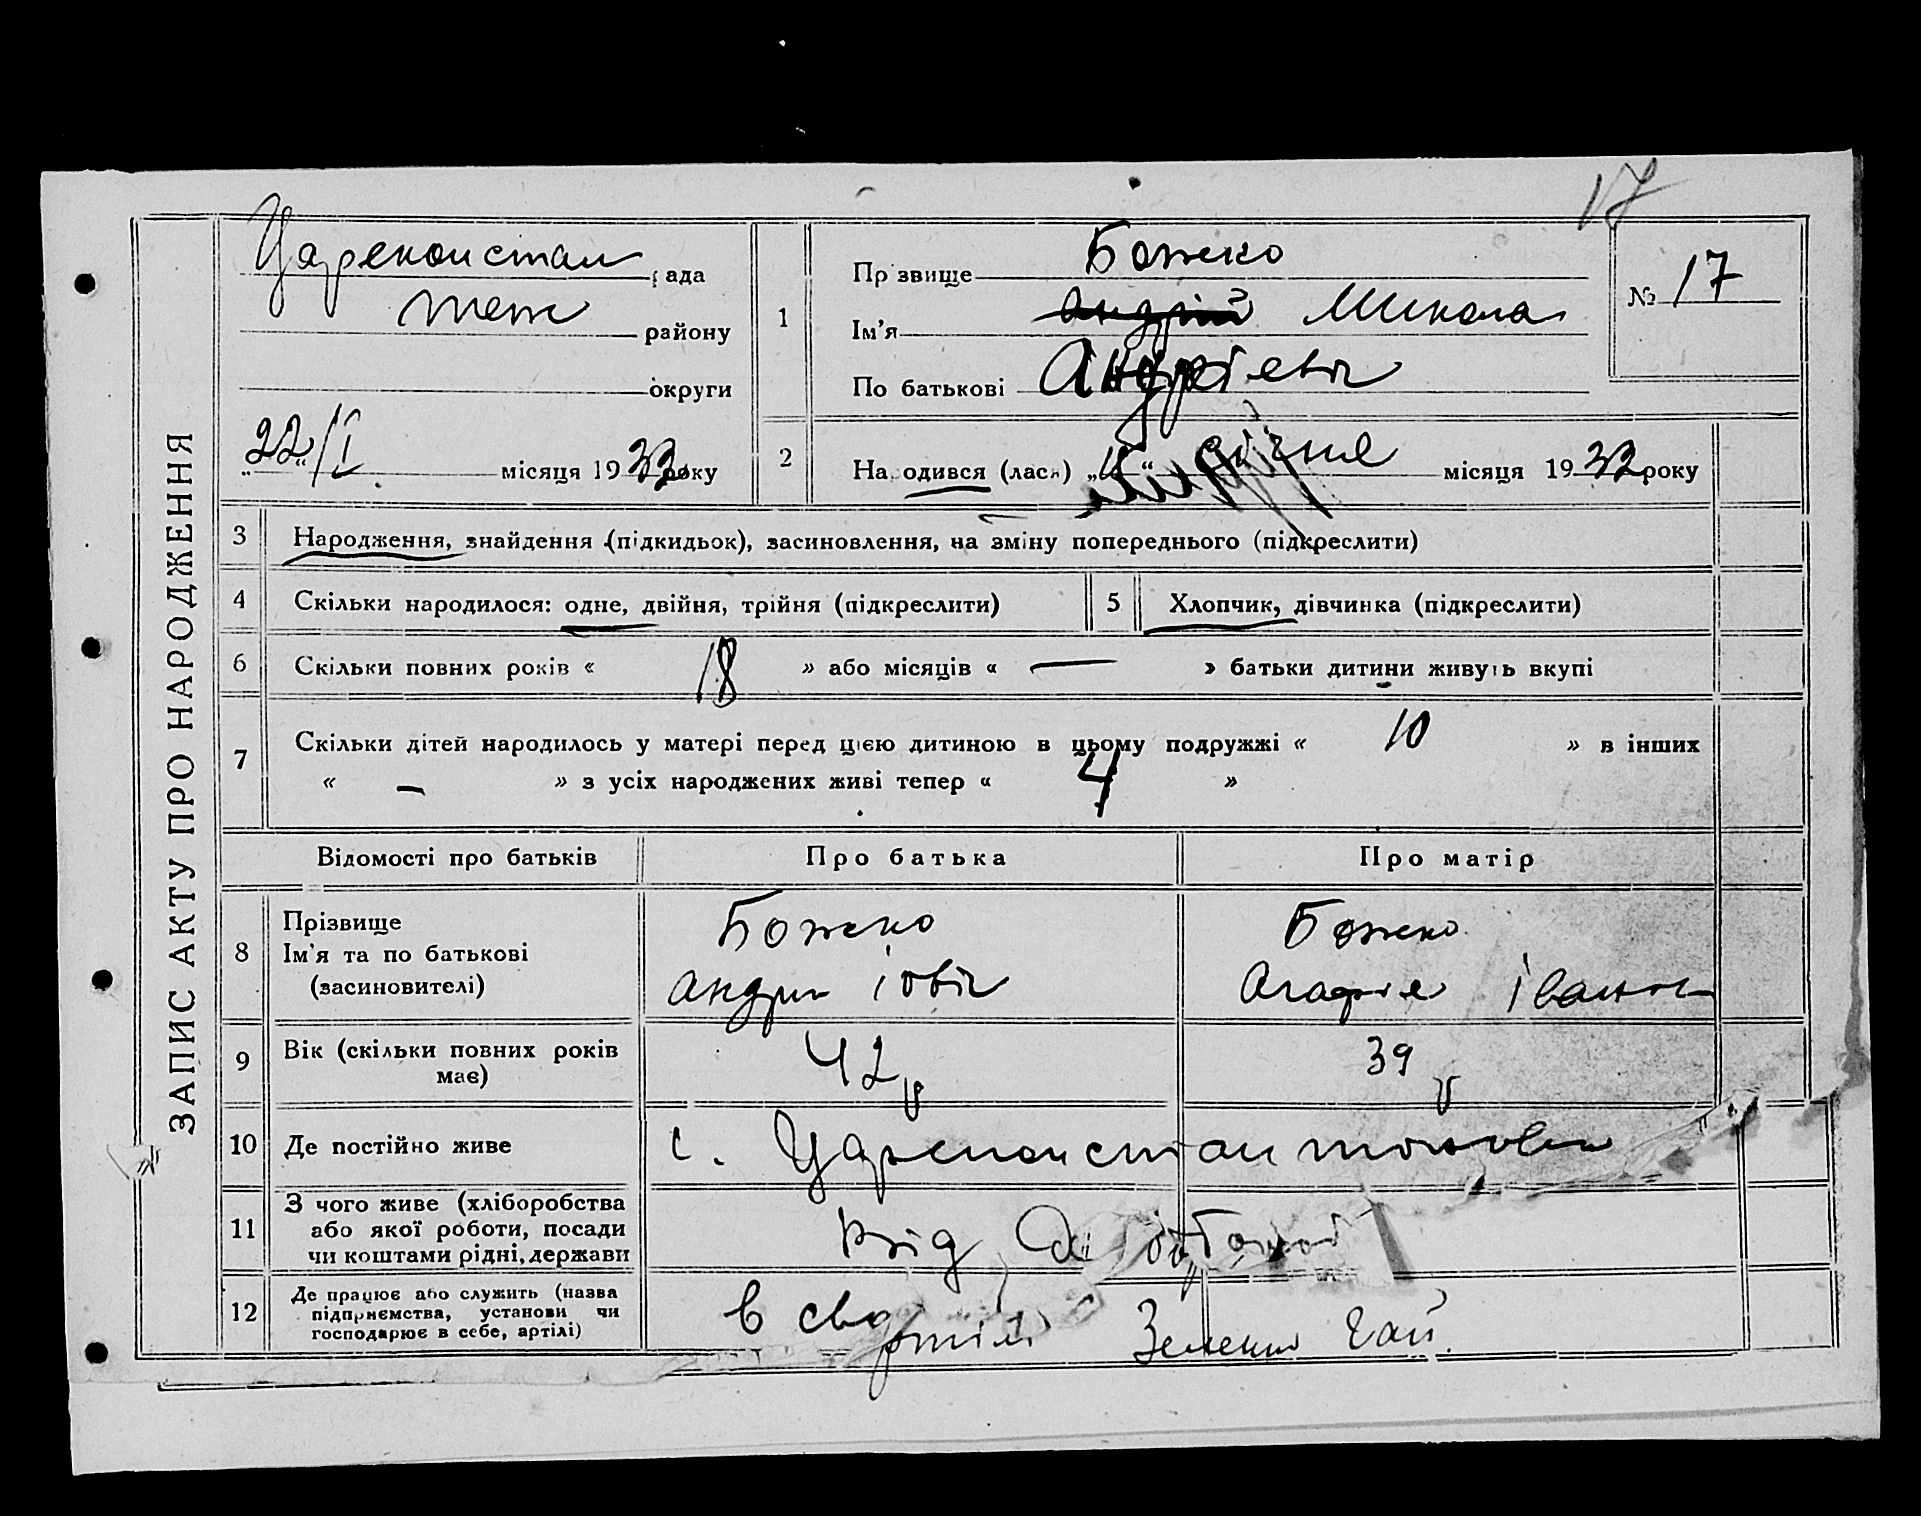 17
ЗАПИС АКТУ ПРО НАРОДЖЕННЯ
Цареконстан рада
теж району
округи
"22"/I місяця 1933 року
1
Прізвище Божко
Ім'я Андрій Микола
По батькові Андрієвіч
№ 17
2 Народився (лася) " " січня місяця 1933 року
3 Народження, знайдення (підкидьок), засиновлення, на зміну попереднього (підкреслити)
4 Скільки народилося: одне, двійня, трійня (підкреслити) 5 Хлопчик, дівчинка (підкреслити)
6 Скільки повних років « 18 » або місяців « — » батьки дитини живуть вкупі
7 Скільки дітей народилось у матері перед цією дитиною в цьому подружжі « 10 » в інших
« – » з усіх народжених живі тепер « 4 »
Відомості про батьків Про батька Про матір
8 Прізвище Божко Божко
Ім'я та по батькові
(засиновителі) Андрій Іовіч Агафія Іванов
9 Вік (скільки повних років 42 39
має)
10 Де постійно живе с. Цареконстантиновка
11 З чого живе (хліборобства
або якої роботи, посади від
чи коштами рідні, держави
12 Де працює або служить (назва
підприємства, установи чи в с/г артілі Зелений Гай
господарює в себе, артілі)